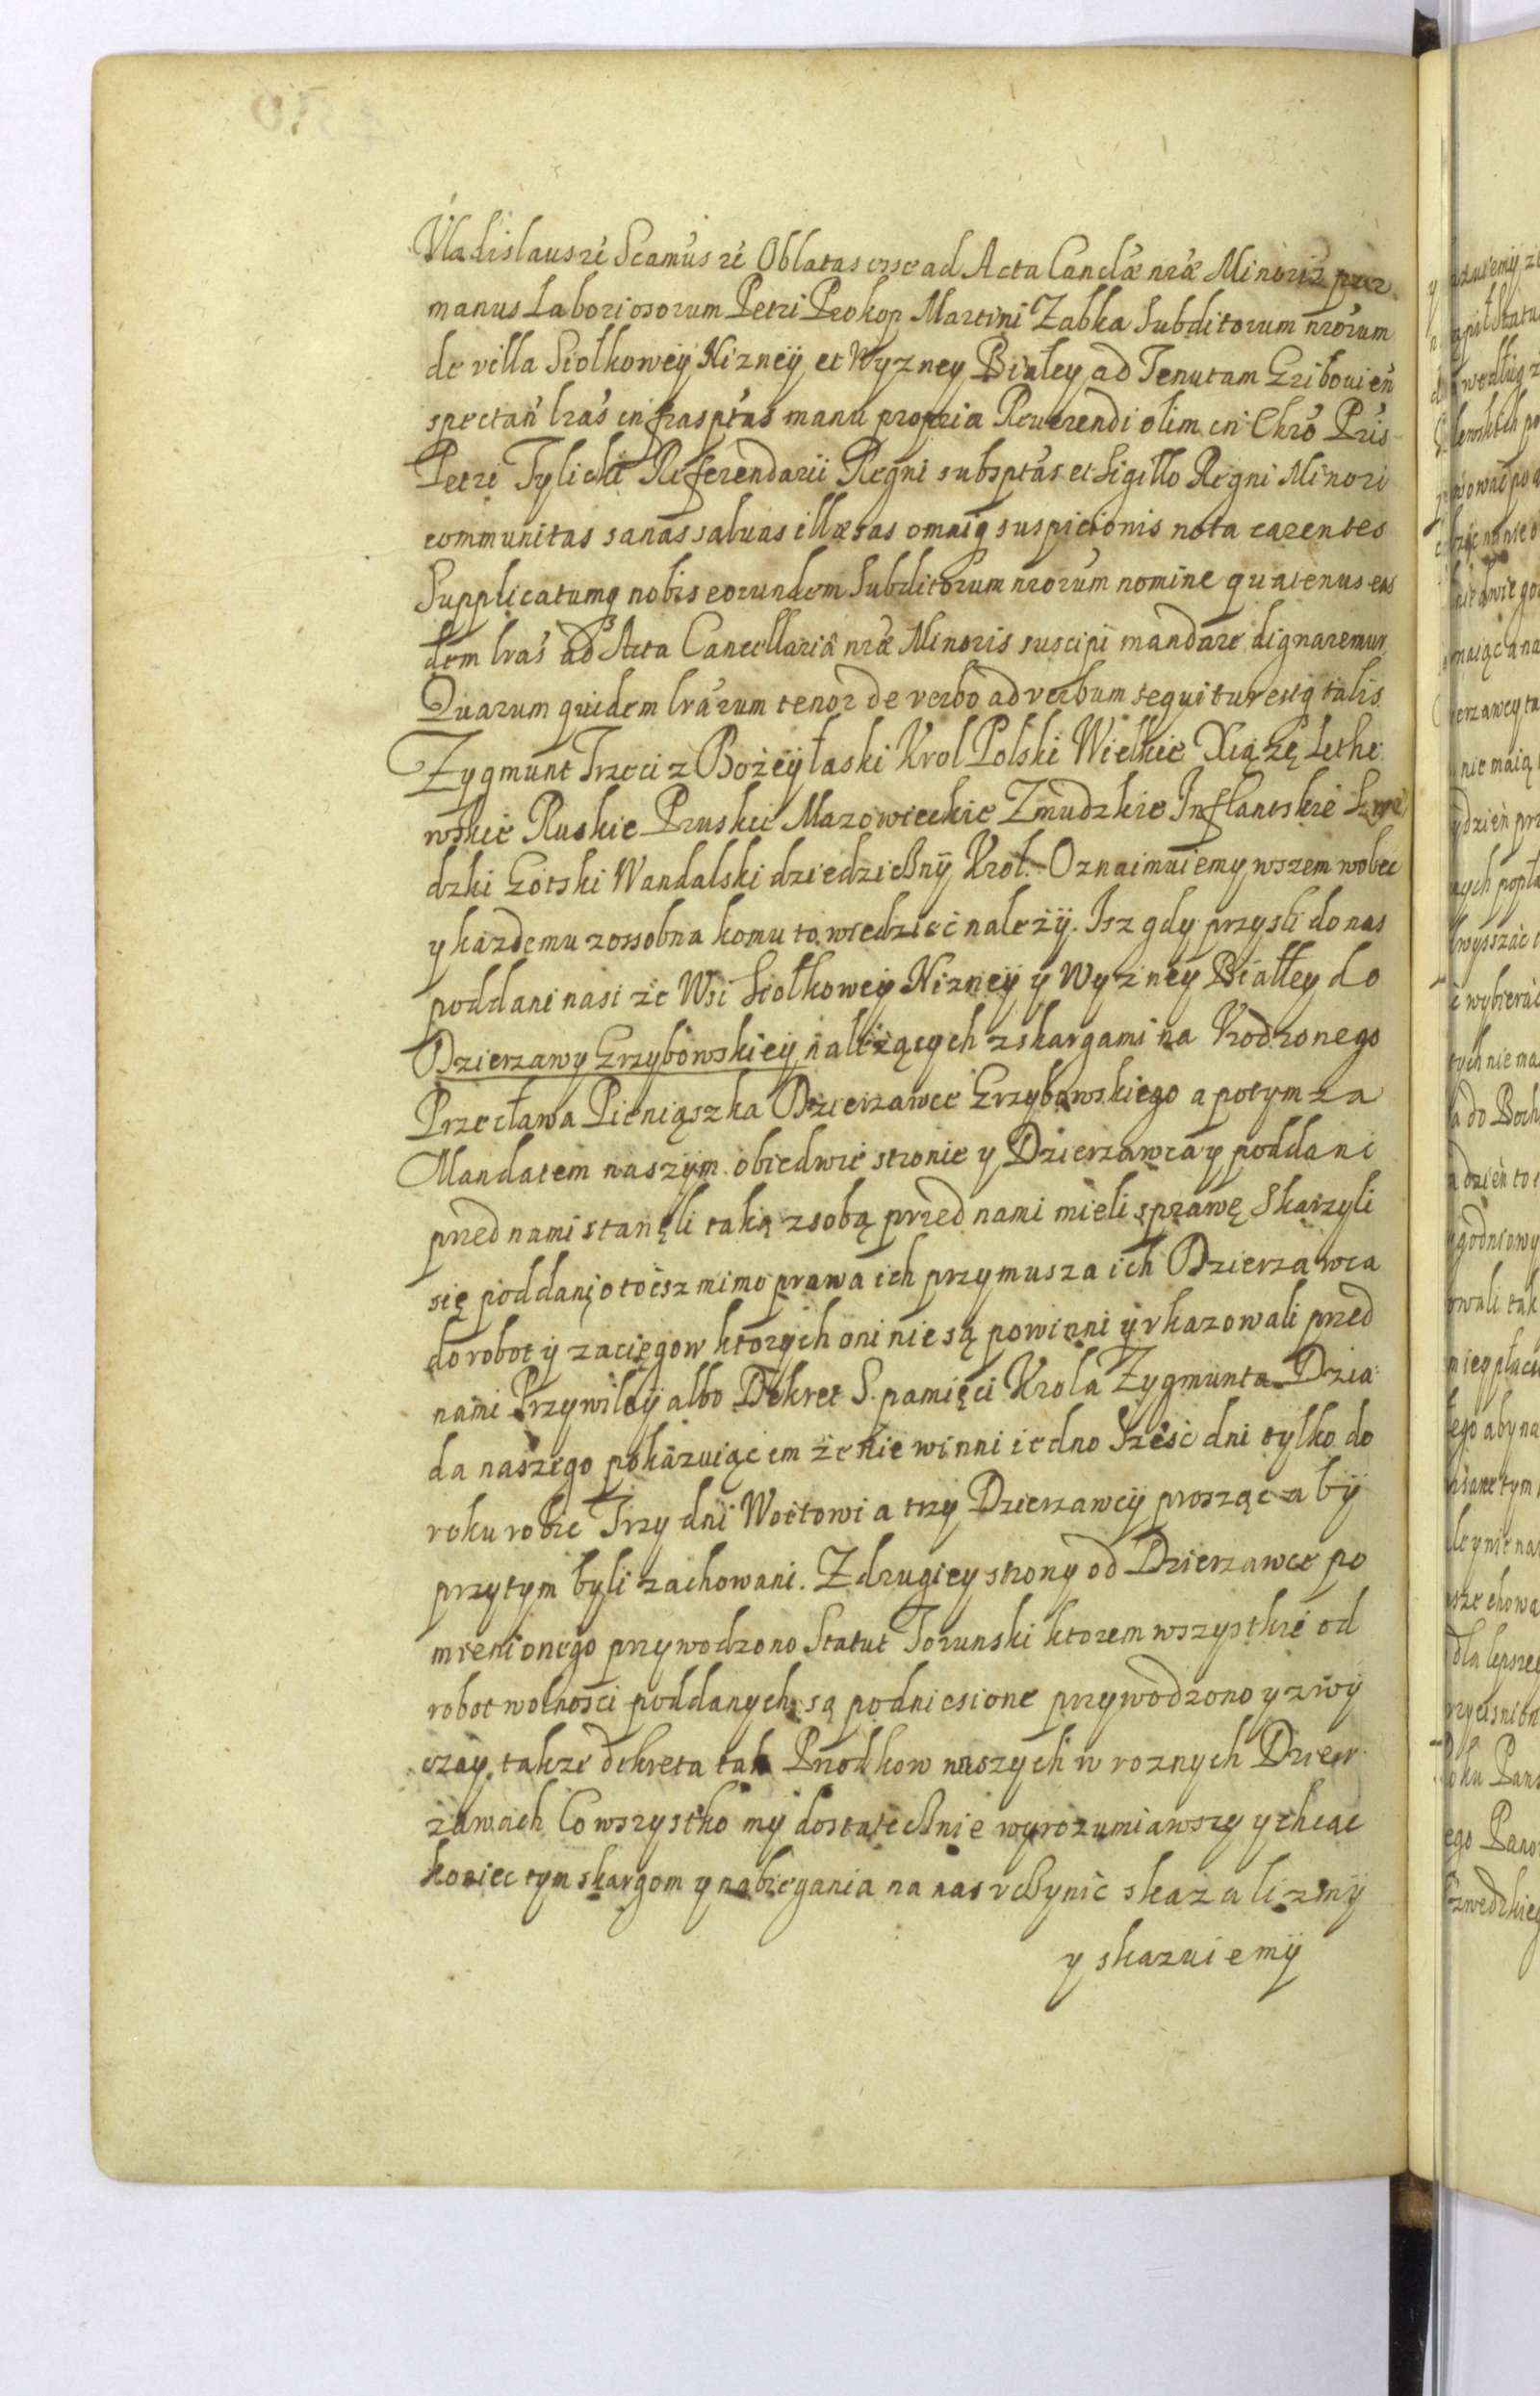 Vladislaus zc Scamus zc Oblatas esse ad Acta Canclae nrae Minoris per
manus Laboriosorum Petri Prokop Martini Zabka Subditorum nrorum
de villa Siołkoweÿ Nizneÿ et Wyzney Białey ad Tenutam Gribouien
spectan lras infrasptas manu propria Reuerendi olim in Chro Pris
Petri Tylicki Referendarii Regni subsptas et Sigillo Regni Minori
communitas sanas saluas illaesas omniq suspicionis nota carentes
Supplicatumq nobis eorundem Subditorum nrorum nomine quatenus eas
dem lras ad Acta Cancellariae nrae Minoris suscipi mandare dignaremur,
Quarum quidem lrarum tenor de verbo ad verbum sequitur estq talis.
Zygmunt Trzeci z Bożeÿ łaski Krol Polski Wielkie Xiążę Lithe
wskie Ruskie Pruskie Mazowieckie Zmudzkie Inflantskie Szwe
dzki Gotski Wandalski dziedzicznÿ Krol. Oznaimuiemy wszem wobec
y kazdemu zossobna komu to wiedziec należÿ. Isz gdy przysli do nas
poddani nasi ze Wsi Siołkoweÿ Nizneÿ y Wyzney Białłey do
Dzierzawy Grzybowskieÿ należących z skargami na Vrodzonego
Przecława Pieniąszka Dzierzawce Grzybowskiego a potym za
Mandatem naszÿm obiedwie stronie y Dzierzawca y poddani
przed nami stanęli taką z sobą przed nami mieli sprawę Skarzyli
się poddani o to isz mimo prawa ich przymusza ich Dzierzawca
do robot ÿ zaciągow ktorych oni nie są powinni ÿ vkazowali przed
nami Przywileÿ albo Dekret S. pamięci Krola Zygmunta Dzia
da naszego pokazuiąc im że nie winni iedno sześć dni tylko do
roku robic Trzy dni Woitowi a trzy Dzierzawcÿ prosząc a bÿ
przytym byli zachowani. Z drugiey strony od Dzierzawce po
mienionego przywodzono Statut Torunski ktorem wszystkie od
robot wolności poddanych są podniesione przywodzono y zwÿ
czay, takze dekreta tak Przodkow naszych w roznych Dzier
zawach Co wszystko mÿ dostatecznie wyrozumiawszy y chcąc
koniec tym skargom y nabiegania na nas vczynić skazalizmÿ
y skazuiemÿ